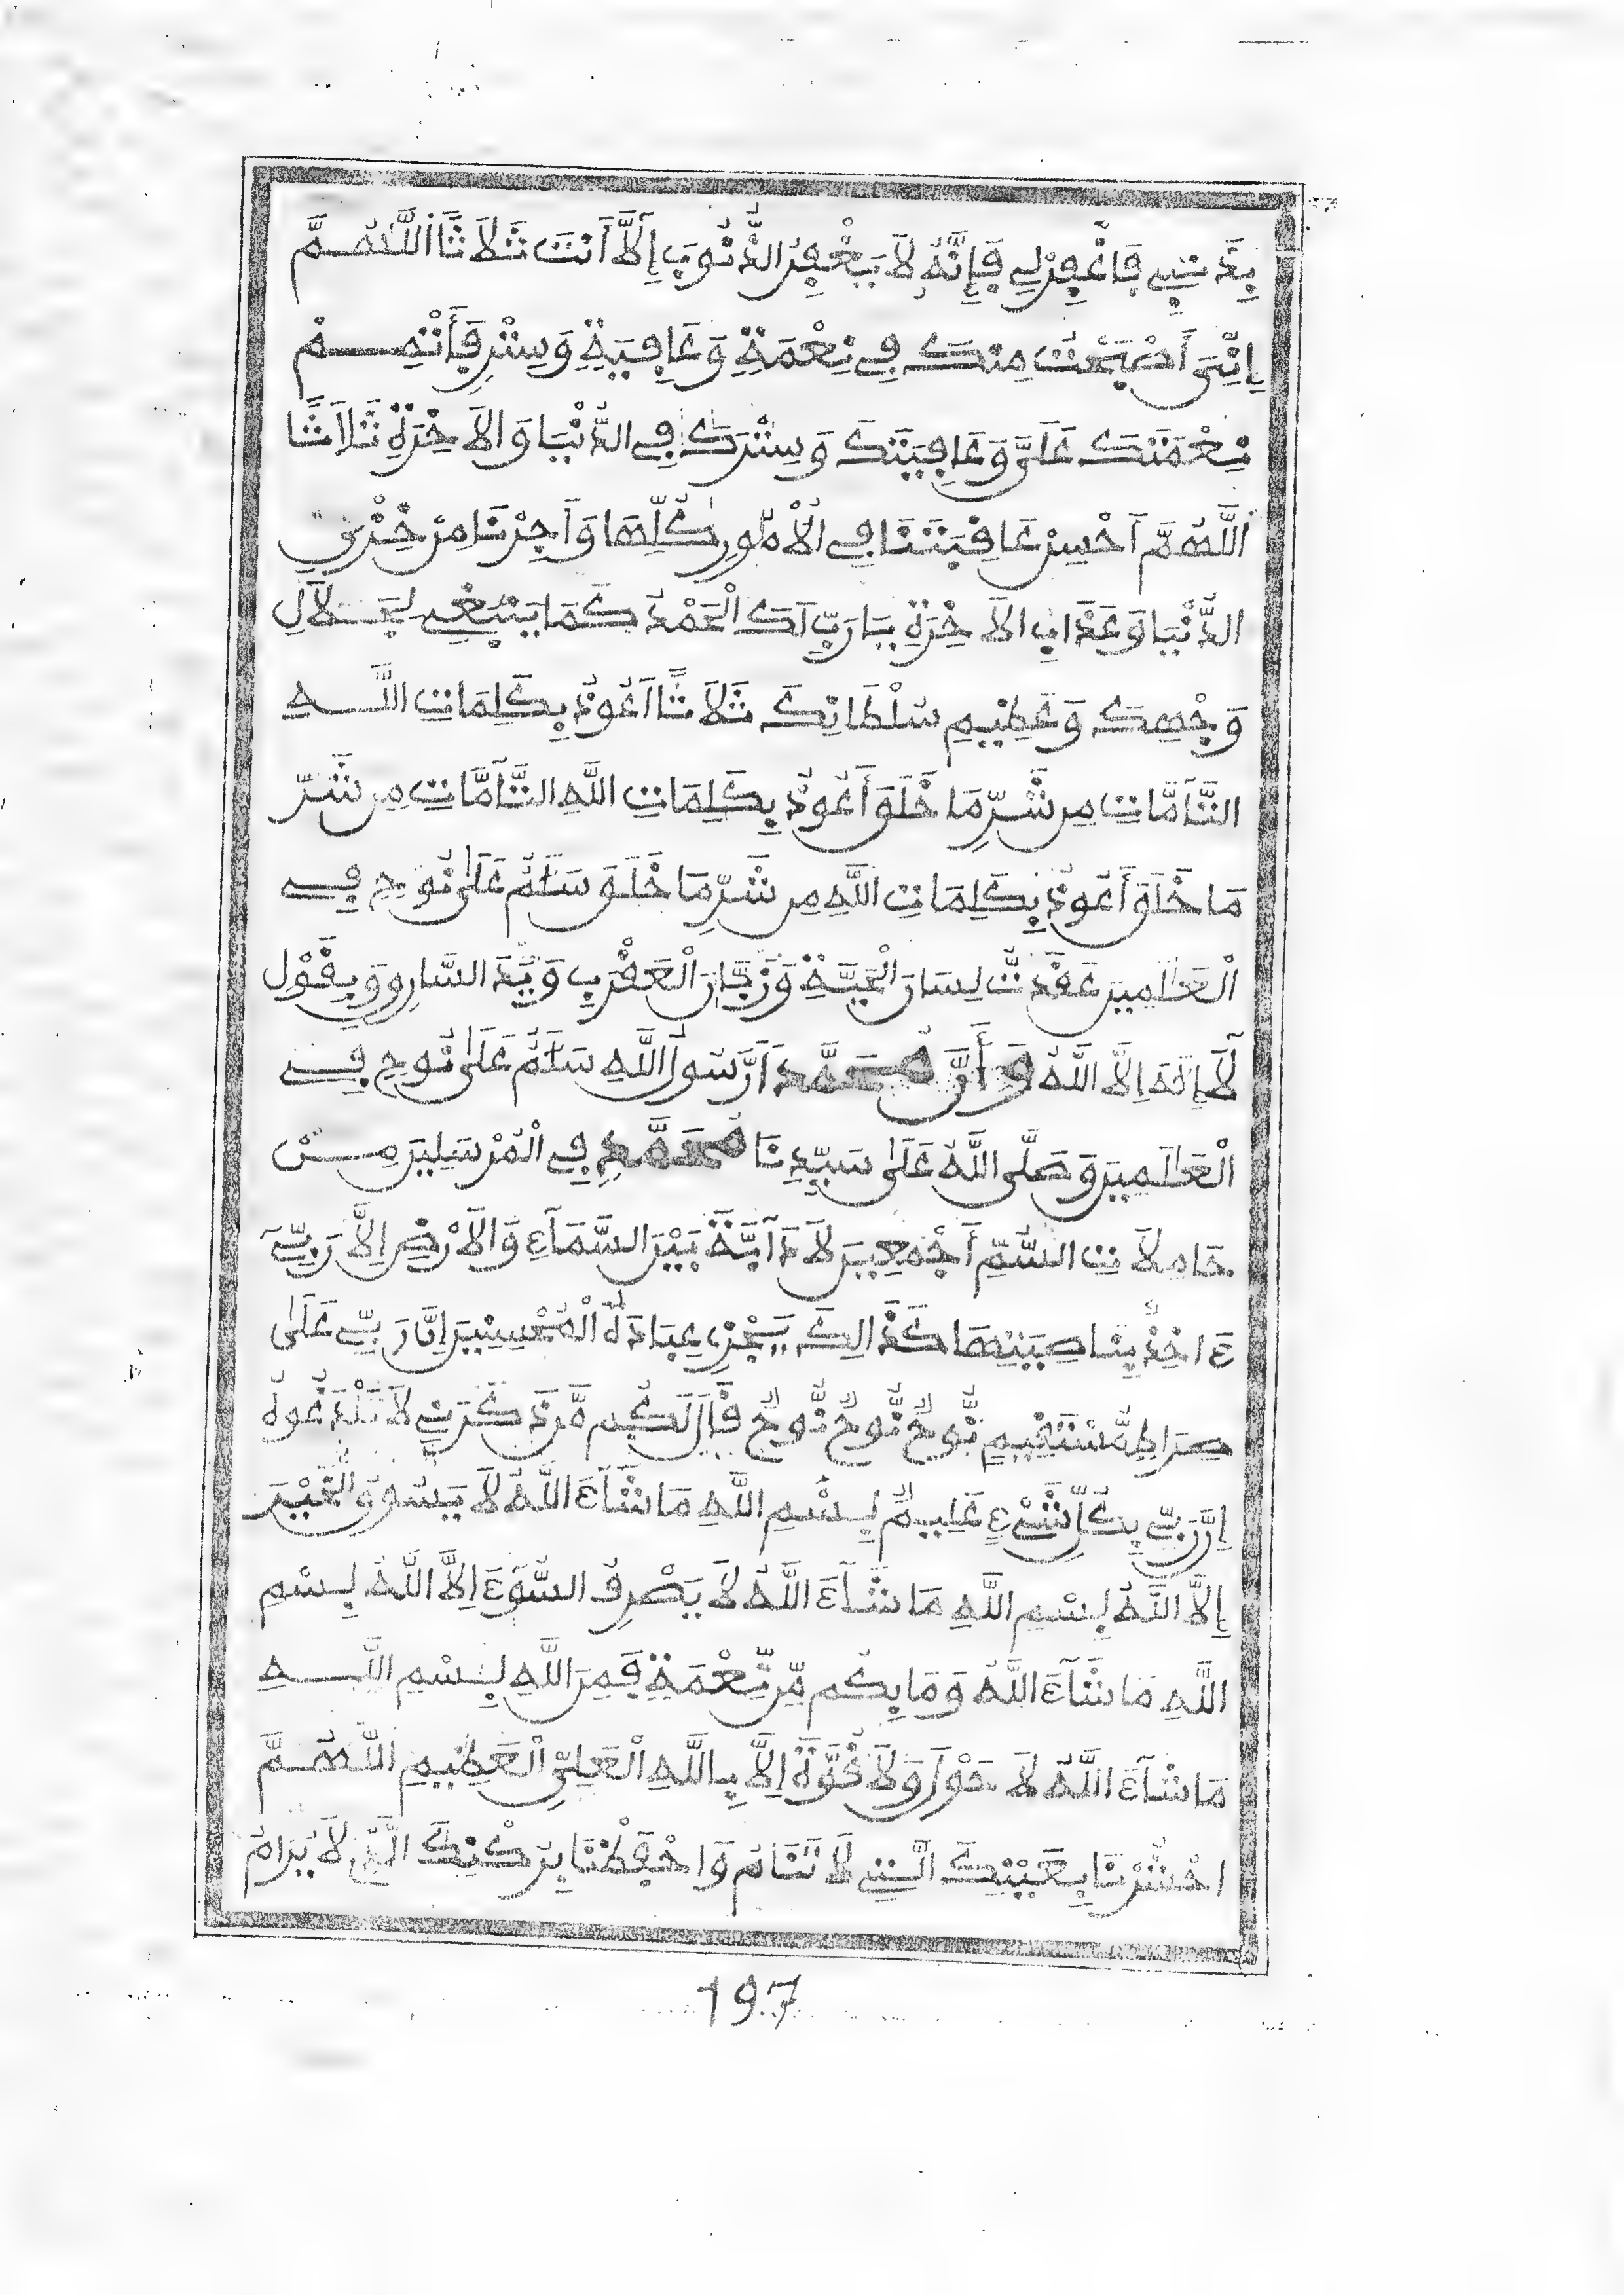 بِذَنْبِي فَاغْفِرْ لِي فَإِنَّهُ لَا يَغْفِرُ الذُّنُوبَ إِلَّا أَنْتَ ثَلَاثًا اَللَّهُمَّ
إِنِّيَ أَصْبَحْتُ مِنْكَ فِي نِعْمَةٍ وَعَافِيَةٍ وَسِتْرٍ فَأَتْمِمْ
نِعْمَتَكَ عَلَيَّ وَعَافِيَتَكَ وَسِتْرَكَ فِي الدُّنْيَا وَالَاخِرَةِ ثَلَاثًا
اَللَّهُمَّ أَحْسِنْ عَافِيَتَنَا فِي الْأُمُورِ كُلِّهَا وَأَجِرْنَا مِنْ خِزْيِ
الدُّنْيَا وَعَذَابِ الَاخِرَةِ يَا رَبِّ لَكَ الْحَمْدُ كَمَا يَنْبَغِي لِجَلَالِ
وَجْهِكَ وَعَظِيمِ سُلْطَانِكَ ثَلَاثًا اَعُوذُ بِكَلِمَاتِ اللَّهِ
التَّآمَّاتِ مِن شَرِّ مَا خَلَقَ أَعُوذُ بِكَلِمَاتِ اللَّهِ التَّآمَّاتِ مِن شَرِّ
مَا خَلَقَ أَعُوذُ بِكَلِمَاتِ اللَّهِ مِن شَرِّ مَا خَلَقَ سَلَٰمٌ عَلَىٰ نُوحٍ فِي
الْعَٰلَمِينَ عَقَدتُّ لِسَانَ الْحَيَّةِ وَزُبَانَ الْعَقْرَبِ وَيَدَ السَّارِقِ وَبِقَوْلِ
لَآ إِلَٰهَ إِلَّا اللَّهُ وَأَنَّ مُحَمَّداً رَّسُولُ اللَّهِ سَلَٰمٌ عَلَىٰ نُوحٍ فِي
الْعَٰلَمِينَ وَصَلَّى اللَّهُ عَلَىٰ سَيِّدِنَا مُحَمَّدٍ فِي الْمُرْسَلِينَ مِنْ
حَامِلَاتِ السُّمِّ أَجْمَعِينَ لَا دَآبَّةَ بَيْنَ السَّمَآءِ وَالَارْضِ إِلَّا رَبِّي
ءَاخِذٌ بِنَاصِيَتِهَا كَذَٰلِكَ يَجْزِي عِبَادَهُ الْمُحْسِنِينَ إِنَّ رَبِّي عَلَىٰ
صِرَاطٍ مُّسْتَقِيمٍ نُّوحٌ نُّوحٌ نُّوحٌ قَالَ لَكُم مَّن ذَكَرَنِي لَا تَلْدَغُوهُ
إِنَّ رَبِّي بِكُلِّ شَيْءٍ عَلِيمٌ بِسْمِ اللَّهِ مَا شَآءَ اللَّهُ لَا يَسُوقُ الْخَيْرَ
إِلَّا اللَّهُ بِسْمِ اللَّهِ مَا شَآءَ اللَّهُ لَا يَصْرِفُ السُّوٓءَ إِلَّا اللَّهُ بِسْمِ
اللَّهِ مَا شَآءَ اللَّهُ وَمَا بِكُم مِّن نِّعْمَةٍ فَمِنَ اللَّهِ بِسْمِ اللَّهِ
مَا شَآءَ اللَّهُ لَا حَوْلَ وَلَا قُوَّةَ إِلَّا بِاللَّهِ الْعَلِيِّ الْعَظِيمِ اللَّهُمَّ
احْرُسْنَا بِعَيْنِكَ الَّتِي لَا تَنَامُ وَاحْفَظْنَا بِرُكْنِكَ الَّذِي لَا يُرَامُ
197